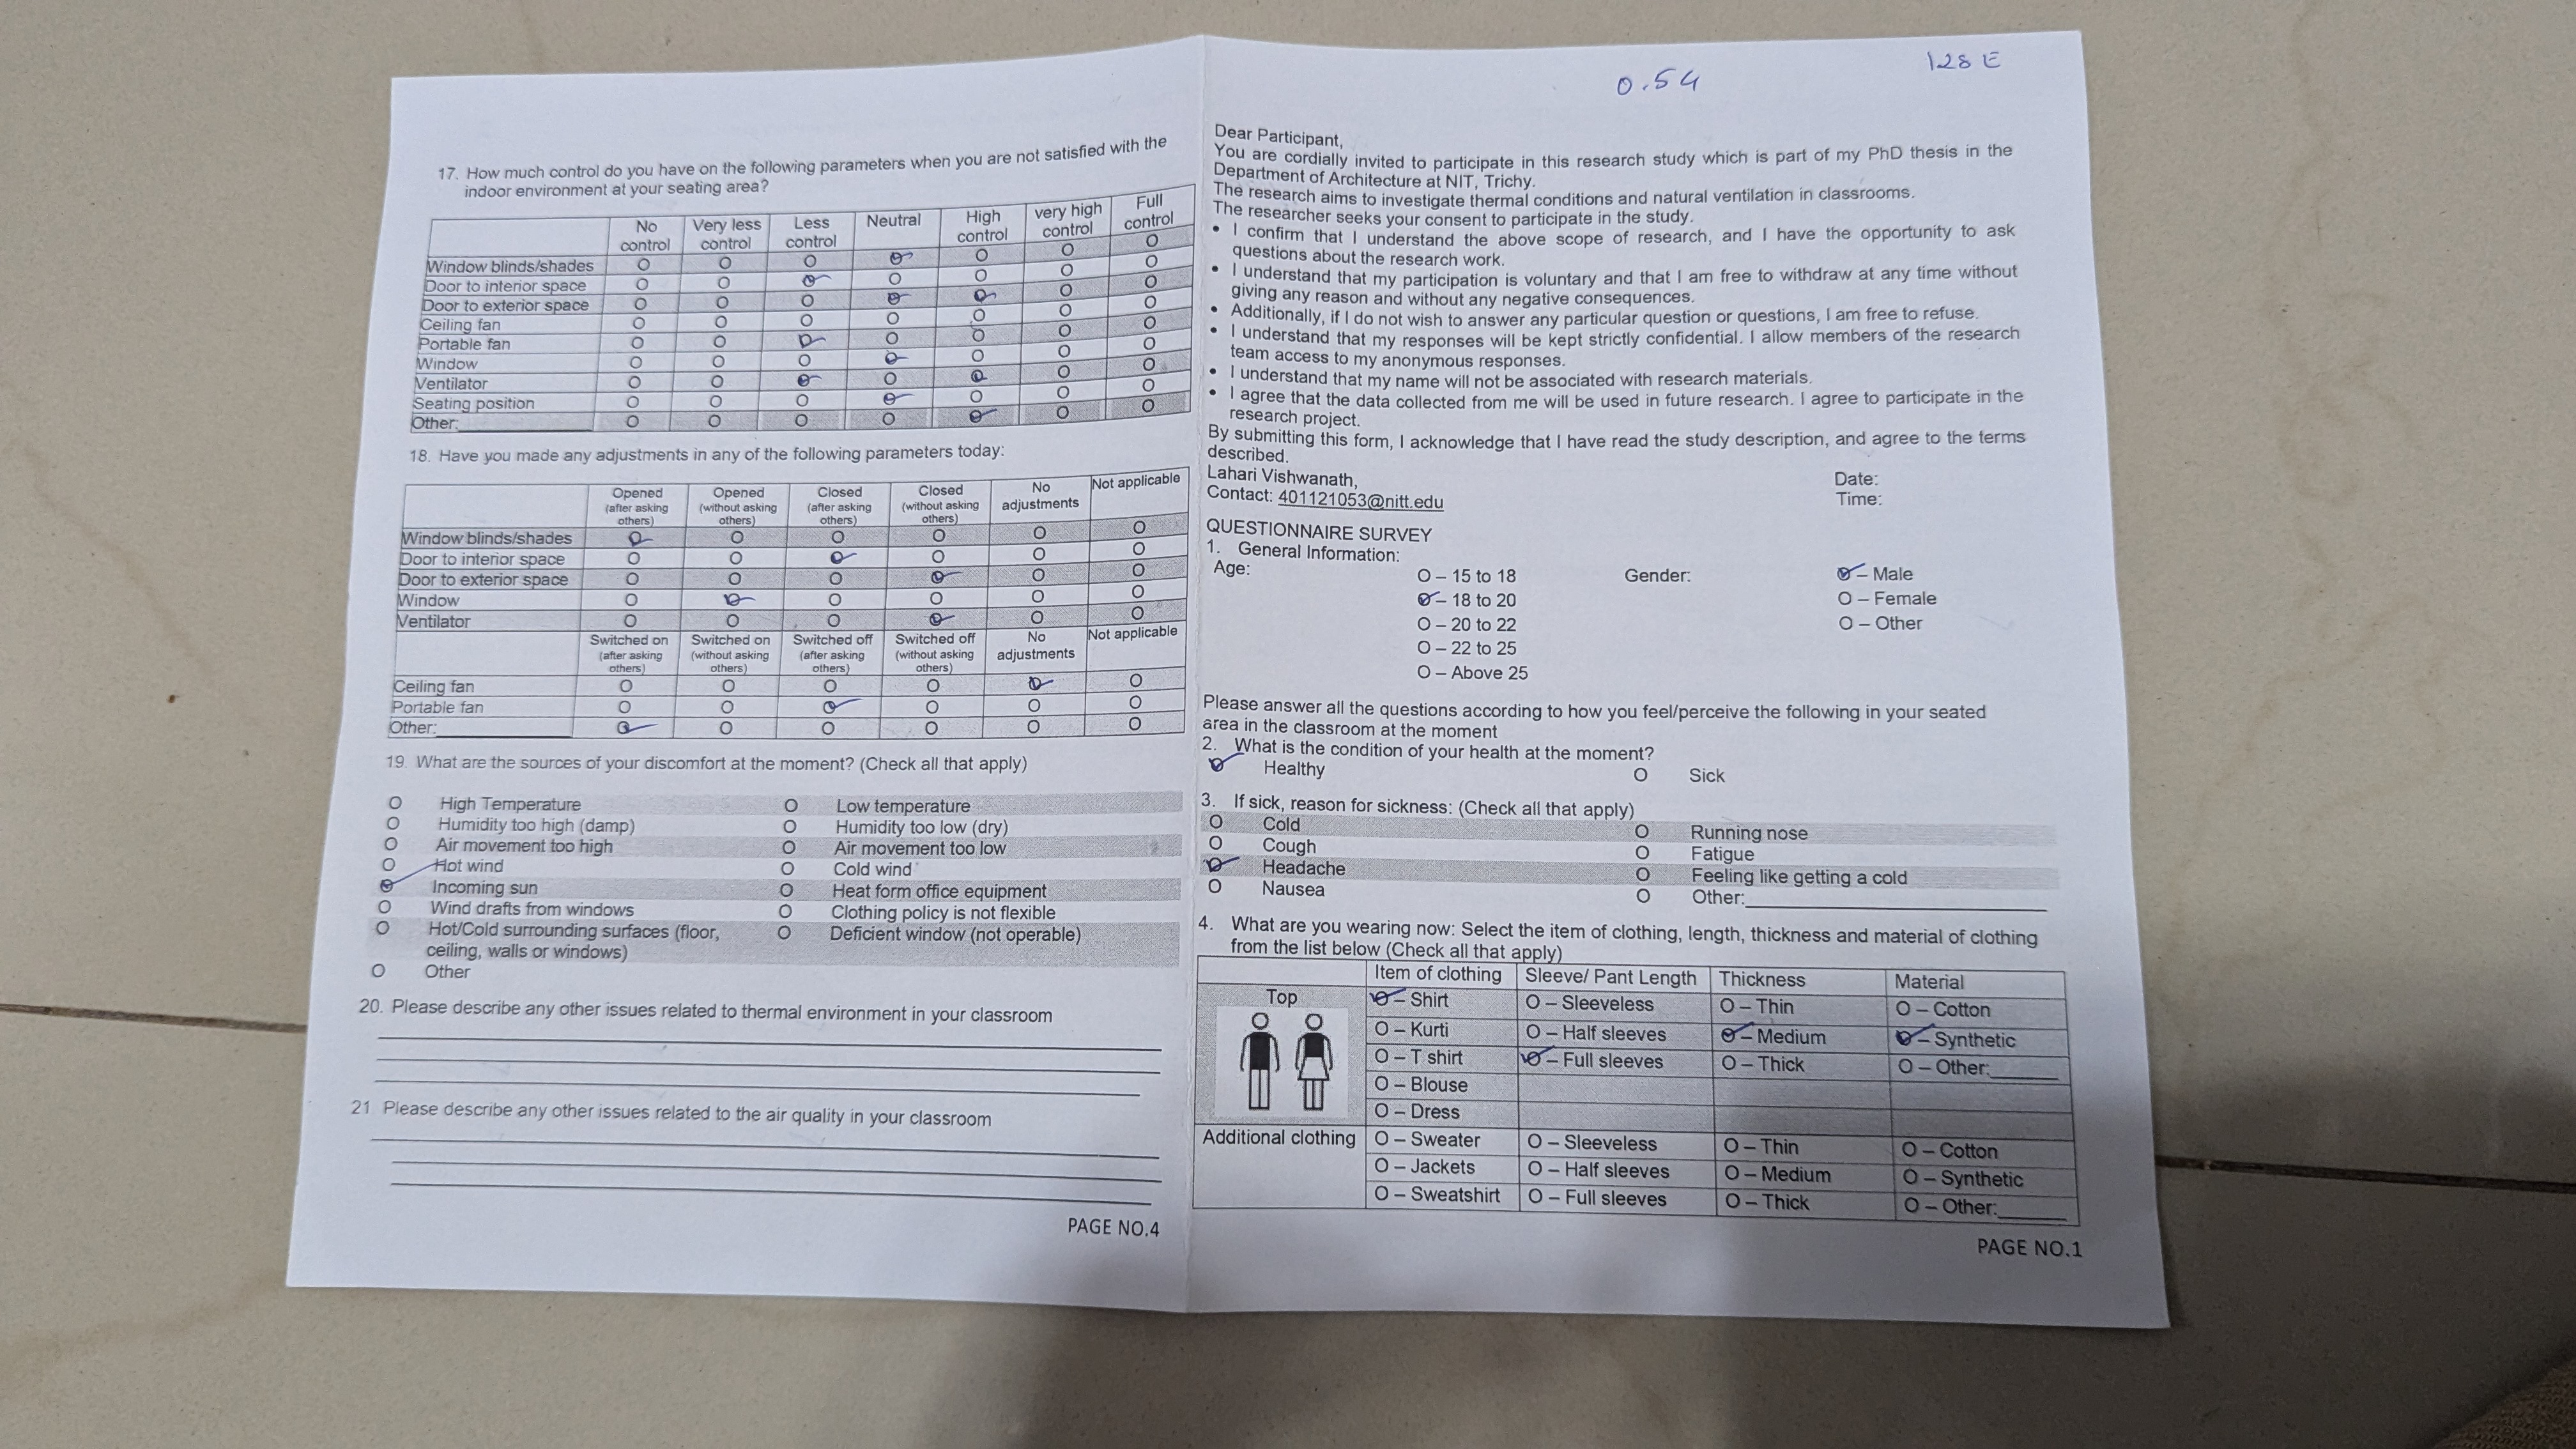 17. How much control do you have on the following parameters when you are not satisfied with the
indoor environment at your seating area?
No control Very less control Less control Neutral High control very high control Full control
Window blinds/shades O O O O O O O
Door to interior space O O O O O O O
Door to exterior space O O O O O O O
Ceiling fan O O O O O O O
Portable fan O O O O O O O
Window O O O O O O O
Ventilator O O O O O O O
Seating position O O O O O O O
Other:__________ O O O O O O O
18. Have you made any adjustments in any of the following parameters today:
Opened (after asking others) Opened (without asking others) Closed (after asking others) Closed (without asking others) No adjustments Not applicable
Window blinds/shades O O O O O O
Door to interior space O O O O O O
Door to exterior space O O O O O O
Window O O O O O O
Ventilator O O O O O O
Switched on (after asking others) Switched on (without asking others) Switched off (after asking others) Switched off (without asking others) No adjustments Not applicable
Ceiling fan O O O O O O
Portable fan O O O O O O
Other:__________ O O O O O O
19. What are the sources of your discomfort at the moment? (Check all that apply)
O High Temperature O Low temperature
O Humidity too high (damp) O Humidity too low (dry)
O Air movement too high O Air movement too low
O Hot wind O Cold wind
O Incoming sun O Heat form office equipment
O Wind drafts from windows O Clothing policy is not flexible
O Hot/Cold surrounding surfaces (floor, O Deficient window (not operable)
ceiling, walls or windows)
O Other
20. Please describe any other issues related to thermal environment in your classroom
21 Please describe any other issues related to the air quality in your classroom
PAGE NO.4
0.54 128 E
Dear Participant,
You are cordially invited to participate in this research study which is part of my PhD thesis in the
Department of Architecture at NIT, Trichy.
The research aims to investigate thermal conditions and natural ventilation in classrooms.
The researcher seeks your consent to participate in the study.
• I confirm that I understand the above scope of research, and I have the opportunity to ask
questions about the research work.
• I understand that my participation is voluntary and that I am free to withdraw at any time without
giving any reason and without any negative consequences.
• Additionally, if I do not wish to answer any particular question or questions, I am free to refuse.
• I understand that my responses will be kept strictly confidential. I allow members of the research
team access to my anonymous responses.
• I understand that my name will not be associated with research materials.
• I agree that the data collected from me will be used in future research. I agree to participate in the
research project.
By submitting this form, I acknowledge that I have read the study description, and agree to the terms
described.
Lahari Vishwanath, Date:
Contact: 401121053@nitt.edu Time:
QUESTIONNAIRE SURVEY
1. General Information:
Age: O – 15 to 18 Gender: O – Male
O – 18 to 20 O – Female
O – 20 to 22 O – Other
O – 22 to 25
O – Above 25
Please answer all the questions according to how you feel/perceive the following in your seated
area in the classroom at the moment
2. What is the condition of your health at the moment?
O Healthy O Sick
3. If sick, reason for sickness: (Check all that apply)
O Cold O Running nose
O Cough O Fatigue
O Headache O Feeling like getting a cold
O Nausea O Other:__________
4. What are you wearing now: Select the item of clothing, length, thickness and material of clothing
from the list below (Check all that apply)
Item of clothing Sleeve/ Pant Length Thickness Material
Top O – Shirt O – Sleeveless O – Thin O – Cotton
O – Kurti O – Half sleeves O – Medium O – Synthetic
O – T shirt O – Full sleeves O – Thick O – Other:______
O – Blouse
O – Dress
Additional clothing O – Sweater O – Sleeveless O – Thin O – Cotton
O – Jackets O – Half sleeves O – Medium O – Synthetic
O – Sweatshirt O – Full sleeves O – Thick O – Other:______
PAGE NO.1